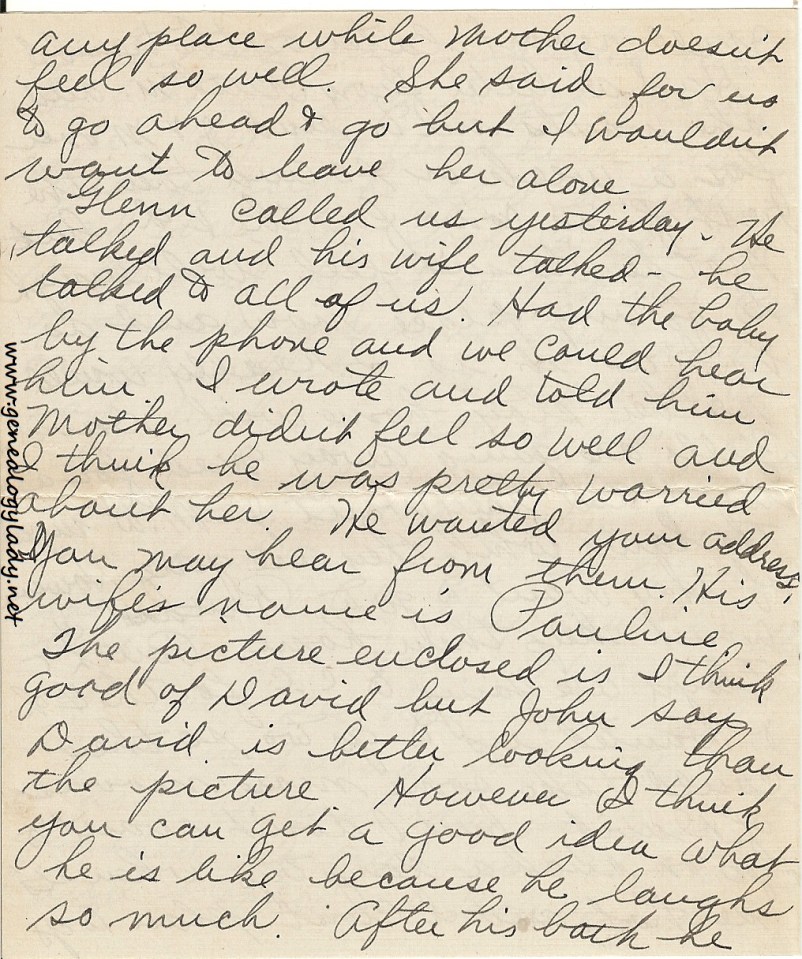 any place while Mother doesn't
feel so well. She said for us
to go ahead & go but I wouldn't
want to leave her alone
Glenn called us yesterday. He
talked and his wife talked - he
talked to all of us. Had the baby
by the phone and we could hear
him. I wrote and told him
Mother didn't feel so well and
I think he was pretty worried
about her. He wanted your address.
You may hear from them. His
wife's name is Pauline.
The picture enclosed is I think
good of David but John say
David is better looking than
the picture. However I think
you can get a good idea what
he is like because he laughs
so much. After his bath he
www.genealogylady.net